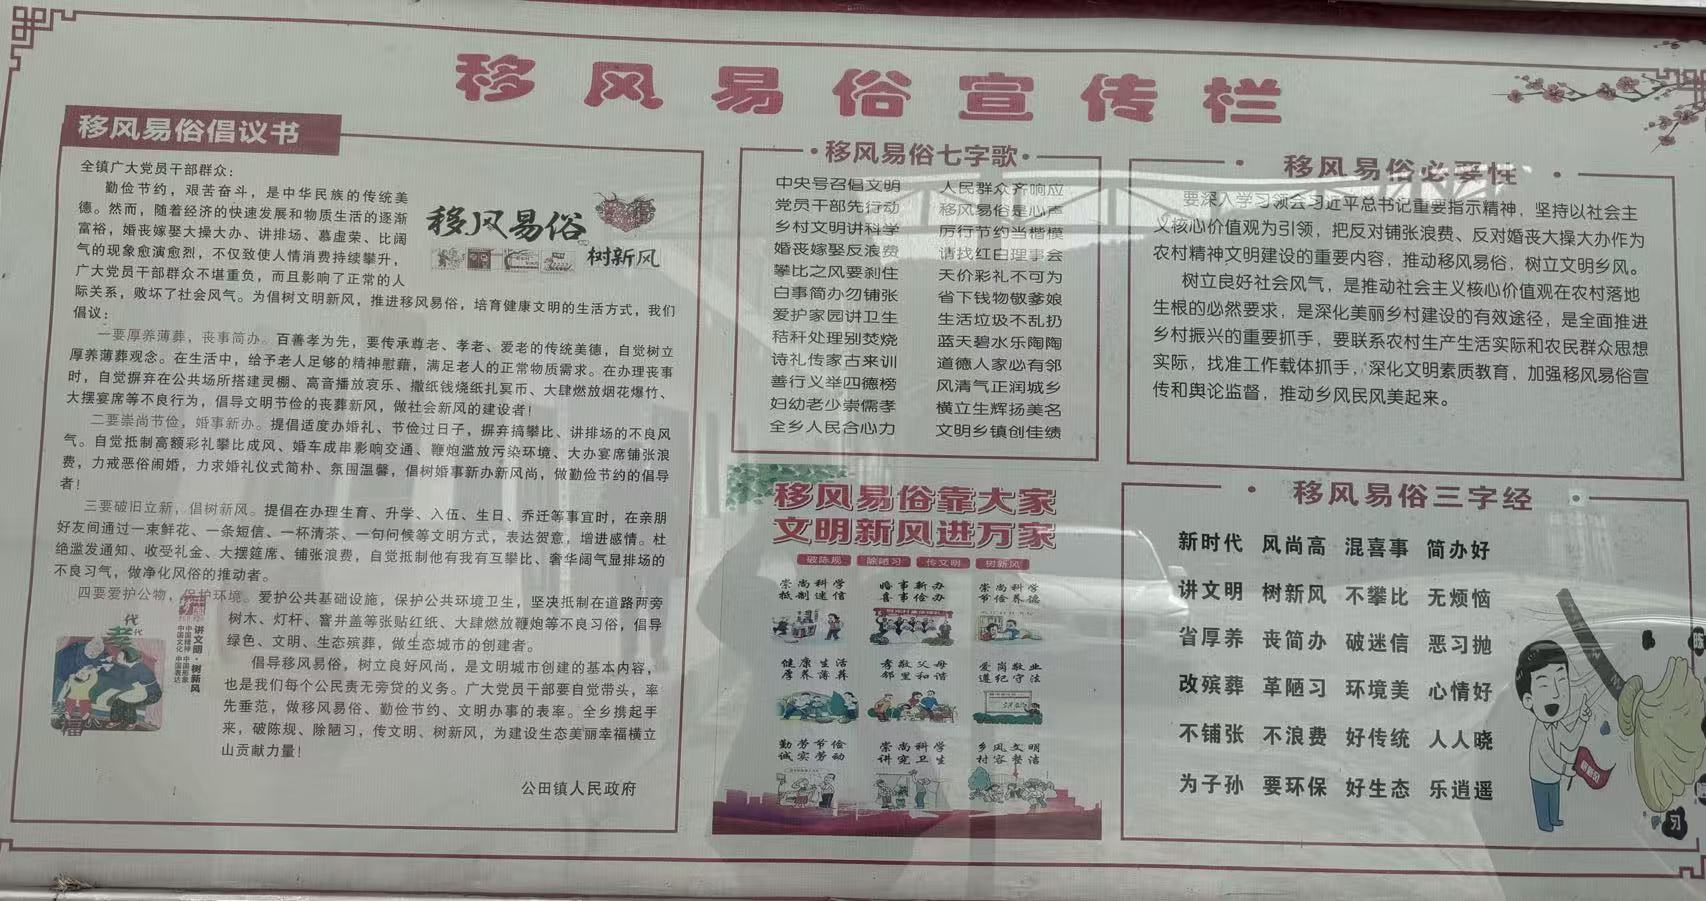 移风易俗宣传栏
移风易俗倡议书
全镇广大党员干部群众：
勤俭节约，艰苦奋斗，是中华民族的传统美
德。然而，随着经济的快速发展和物质生活的逐渐
富裕，婚丧嫁娶大操大办、讲排场、慕虚荣、比阔
气的现象愈演愈烈，不仅致使人情消费持续攀升，
广大党员干部群众不堪重负，而且影响了正常的人
际关系，败坏了社会风气。为倡树文明新风，推进移风易俗，培育健康文明的生活方式，我们
倡议：
移风易俗
树新风
一要厚养薄葬，丧事简办。百善孝为先，要传承尊老、孝老、爱老的传统美德，自觉树立
厚养薄葬观念。在生活中，给予老人足够的精神慰藉，满足老人的正常物质需求。在办理丧事
时，自觉摒弃在公共场所搭建灵棚、高音播放哀乐、撒纸钱烧纸扎冥币、大肆燃放烟花爆竹、
大摆宴席等不良行为，倡导文明节俭的丧葬新风，做社会新风的建设者！
二要崇尚节俭，婚事新办。提倡适度办婚礼、节俭过日子，摒弃搞攀比、讲排场的不良风
气。自觉抵制高额彩礼攀比成风、婚车成串影响交通、鞭炮滥放污染环境、大办宴席铺张浪
费，力戒恶俗闹婚，力求婚礼仪式简朴、氛围温馨，倡树婚事新办新风尚，做勤俭节约的倡导
者！
三要破旧立新，倡树新风。提倡在办理生育、升学、入伍、生日、乔迁等事宜时，在亲朋
好友间通过一束鲜花、一条短信、一杯清茶、一句问候等文明方式，表达贺意，增进感情。杜
绝滥发通知、收受礼金、大摆筵席、铺张浪费，自觉抵制他有我有互攀比、奢华阔气显排场的
不良习气，做净化风俗的推动者。
四要爱护公物，保护环境。爱护公共基础设施，保护公共环境卫生，坚决抵制在道路两旁
树木、灯杆、窨井盖等张贴红纸、大肆燃放鞭炮等不良习俗，倡导
绿色、文明、生态殡葬，做生态城市的创建者。
倡导移风易俗，树立良好风尚，是文明城市创建的基本内容，
也是我们每个公民责无旁贷的义务。广大党员干部要自觉带头，率
先垂范，做移风易俗、勤俭节约、文明办事的表率。全乡携起手
来，破陈规、除陋习，传文明、树新风，为建设生态美丽幸福横立
山贡献力量！
讲文明·树新风
中国精神 中国形象
中国文化 中国表达
代代
孝
福
公田镇人民政府
移风易俗七字歌
中央号召倡文明 人民群众齐响应
党员干部先行动 移风易俗是心声
乡村文明讲科学 厉行节约当楷模
婚丧嫁娶反浪费 请找红白理事会
攀比之风要刹住 天价彩礼不可为
白事简办勿铺张 省下钱物敬爹娘
爱护家园讲卫生 生活垃圾不乱扔
秸秆处理别焚烧 蓝天碧水乐陶陶
诗礼传家古来训 道德人家必有邻
善行义举四德榜 风清气正润城乡
妇幼老少崇儒孝 横立生辉扬美名
全乡人民合心力 文明乡镇创佳绩
移风易俗必要性
要深入学习领会习近平总书记重要指示精神，坚持以社会主
义核心价值观为引领，把反对铺张浪费、反对婚丧大操大办作为
农村精神文明建设的重要内容，推动移风易俗，树立文明乡风。
树立良好社会风气，是推动社会主义核心价值观在农村落地
生根的必然要求，是深化美丽乡村建设的有效途径，是全面推进
乡村振兴的重要抓手，要联系农村生产生活实际和农民群众思想
实际，找准工作载体抓手，深化文明素质教育，加强移风易俗宣
传和舆论监督，推动乡风民风美起来。
移风易俗靠大家
文明新风进万家
破陈规 除陋习 传文明 树新风
崇尚科学 婚事新办 崇尚科学
抵制迷信 喜事俭办 节俭养德
健康生活 孝敬父母 爱岗敬业
厚养薄葬 邻里和谐 遵纪守法
勤劳节俭 崇尚科学 乡风文明
诚实劳动 讲究卫生 村容整洁
移风易俗三字经
新时代 风尚高 混喜事 简办好
讲文明 树新风 不攀比 无烦恼
省厚养 丧简办 破迷信 恶习抛
改殡葬 革陋习 环境美 心情好
不铺张 不浪费 好传统 人人晓
为子孙 要环保 好生态 乐逍遥
树新风
陈
习